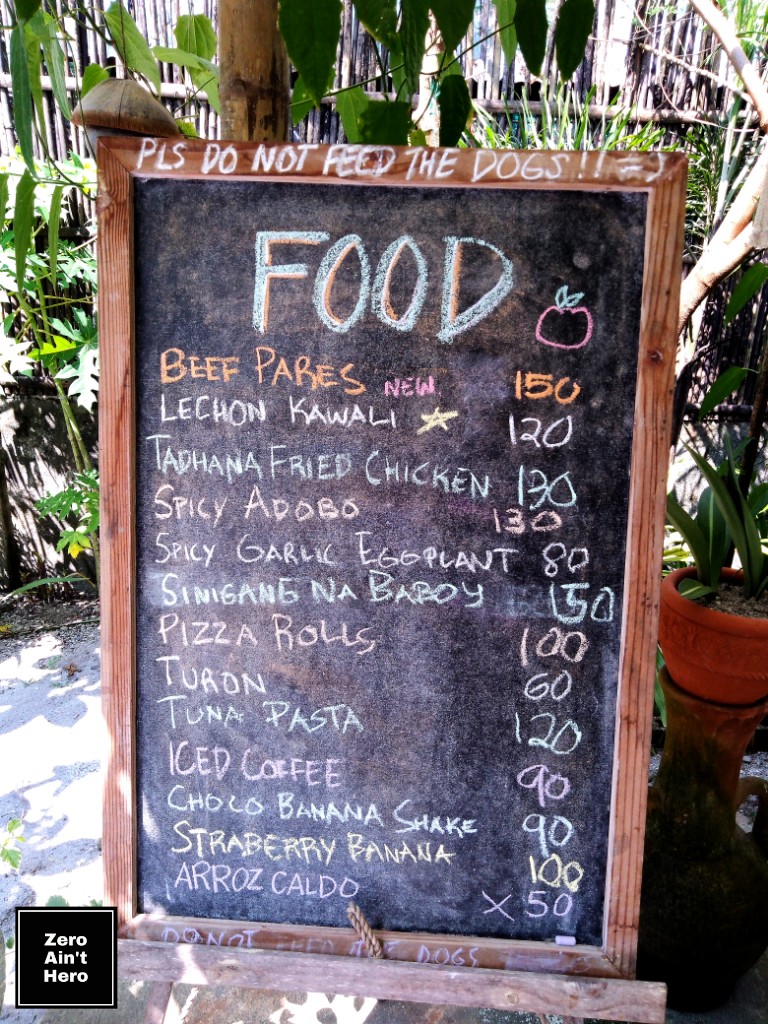 PLS DO NOT FEED THE DOGS!! =)
FOOD
BEEF PARES NEW 150
LECHON KAWALI 120
TADHANA FRIED CHICKEN 130
SPICY ADOBO 130
SPICY GARLIC EGGPLANT 80
SINIGANG NA BABOY 150
PIZZA ROLLS 100
TURON 60
TUNA PASTA 120
ICED COFFEE 90
CHOCO BANANA SHAKE 90
STRABERRY BANANA 100
ARROZ CALDO X 50
DO NOT FEED THE DOGS
Zero
Ain't
Hero